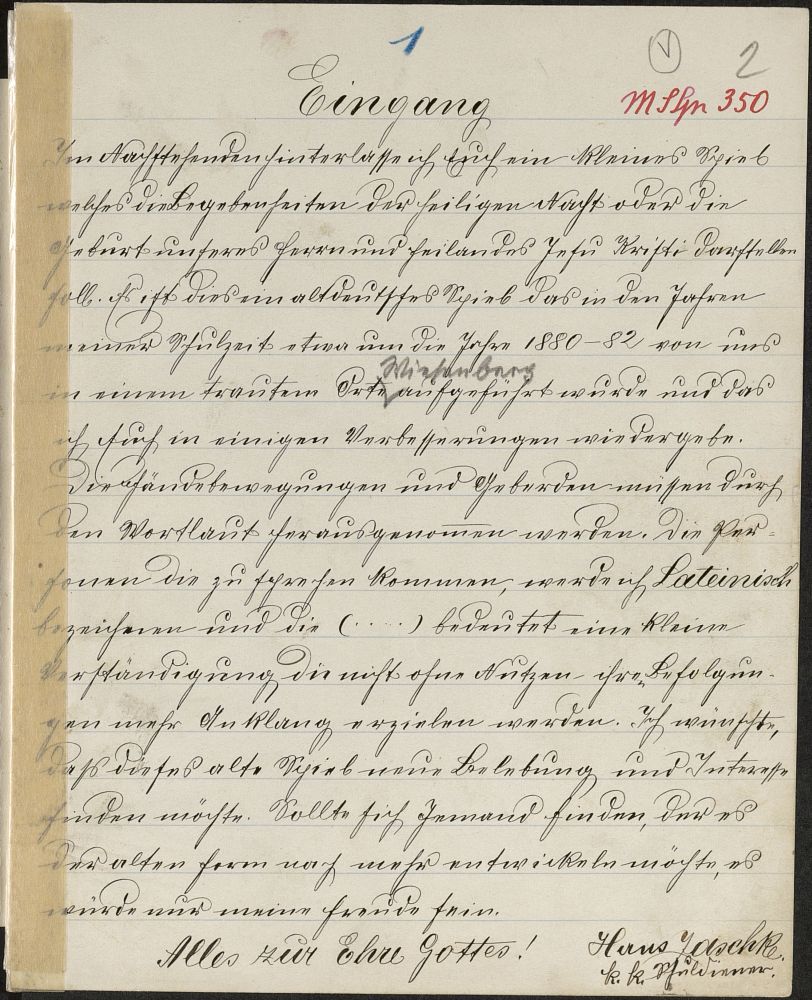 1
2
V
Eingang
MSpn 350
Im Nachstehenden hinterlasse ich Euch ein kleines Spiel
welches die Begebenheiten der heiligen Nacht oder die
Geburt unseres Herrn und Heilandes Jesu Kristi darstellen
soll. Es ist dies ein altdeutsches Spiel das in den Jahren
meiner Schulzeit etwa um die Jahre 1880-82 von uns
Wiesenberg
in einem trautem Orte aufgeführt wurde und das
ich Euch in einigen Verbesserungen wiedergebe.
Die Händebewegungen und Geberden müssen durch
den Wortlaut herausgenom̅en werden. Die Per-
sonen die zu sprechen kommen, werde ich Lateinisch
bezeichnen und die (.....) bedeutet eine kleine
Verständigung die nicht ohne Nutzen ihre Befolgun-
gen mehr Anklang erzielen werden. Ich wünschte,
daß dieses alte Spiel neue Belebung und Interesse
finden möchte. Sollte sich Jemand finden, der es
der alten Form nach mehr entwickeln möchte, es
würde nur meine Freude sein.
Alles zur Ehre Gottes!
Hans Jaschke.
k. k. Schuldiener.